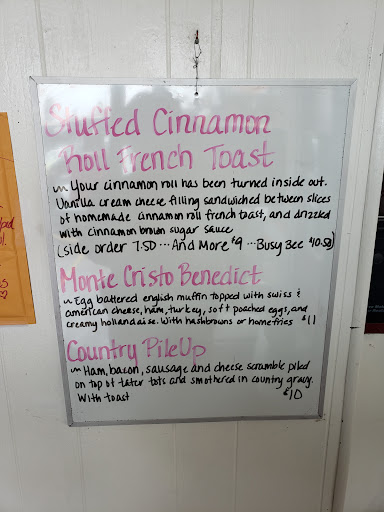 Stuffed Cinnamon
Roll French Toast
~ Your cinnamon roll has been turned inside out.
Vanilla cream cheese filling sandwiched between slices
of homemade cinnamon roll french toast, and drizzled
with cinnamon brown sugar sauce
(side order 7.50 ... And More $9 ... Busy Bee $10.50)
Monte Cristo Benedict
~ Egg battered english muffin topped with swiss &
american cheese, ham, turkey, soft poached eggs, and
creamy hollandaise. With hashbrowns or homefries $11
Country Pile Up
~ Ham, bacon, sausage and cheese scramble piled
on top of tater tots and smothered in country gravy.
With toast $10